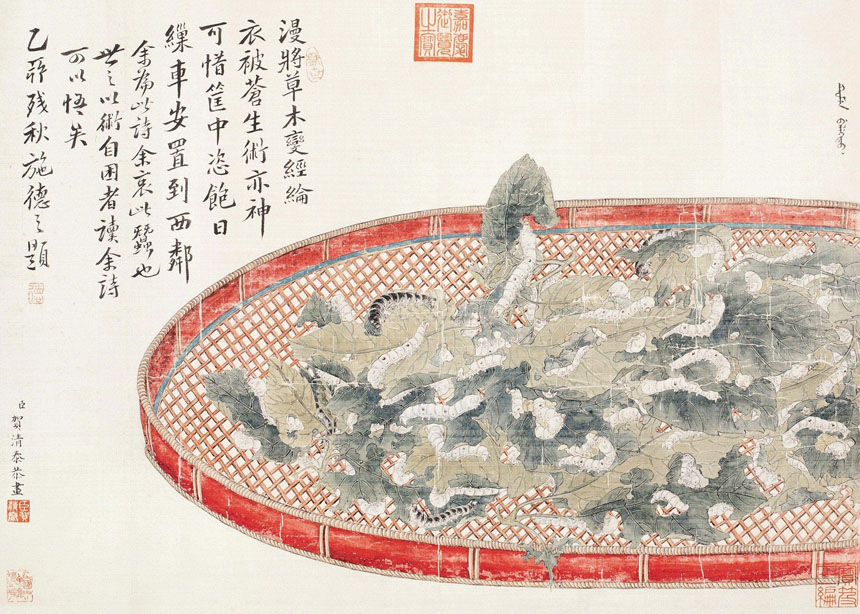 嘉慶御覽之寶
漫將草木變經綸
衣被蒼生術亦神
可惜筐中恣飽日
繅車安置到西鄰
余為此詩余哀此蠶也
世之以術自困者讀余詩
可以悟矣
乙 残秋施德之題
臣賀清泰恭畫
寶笈三編